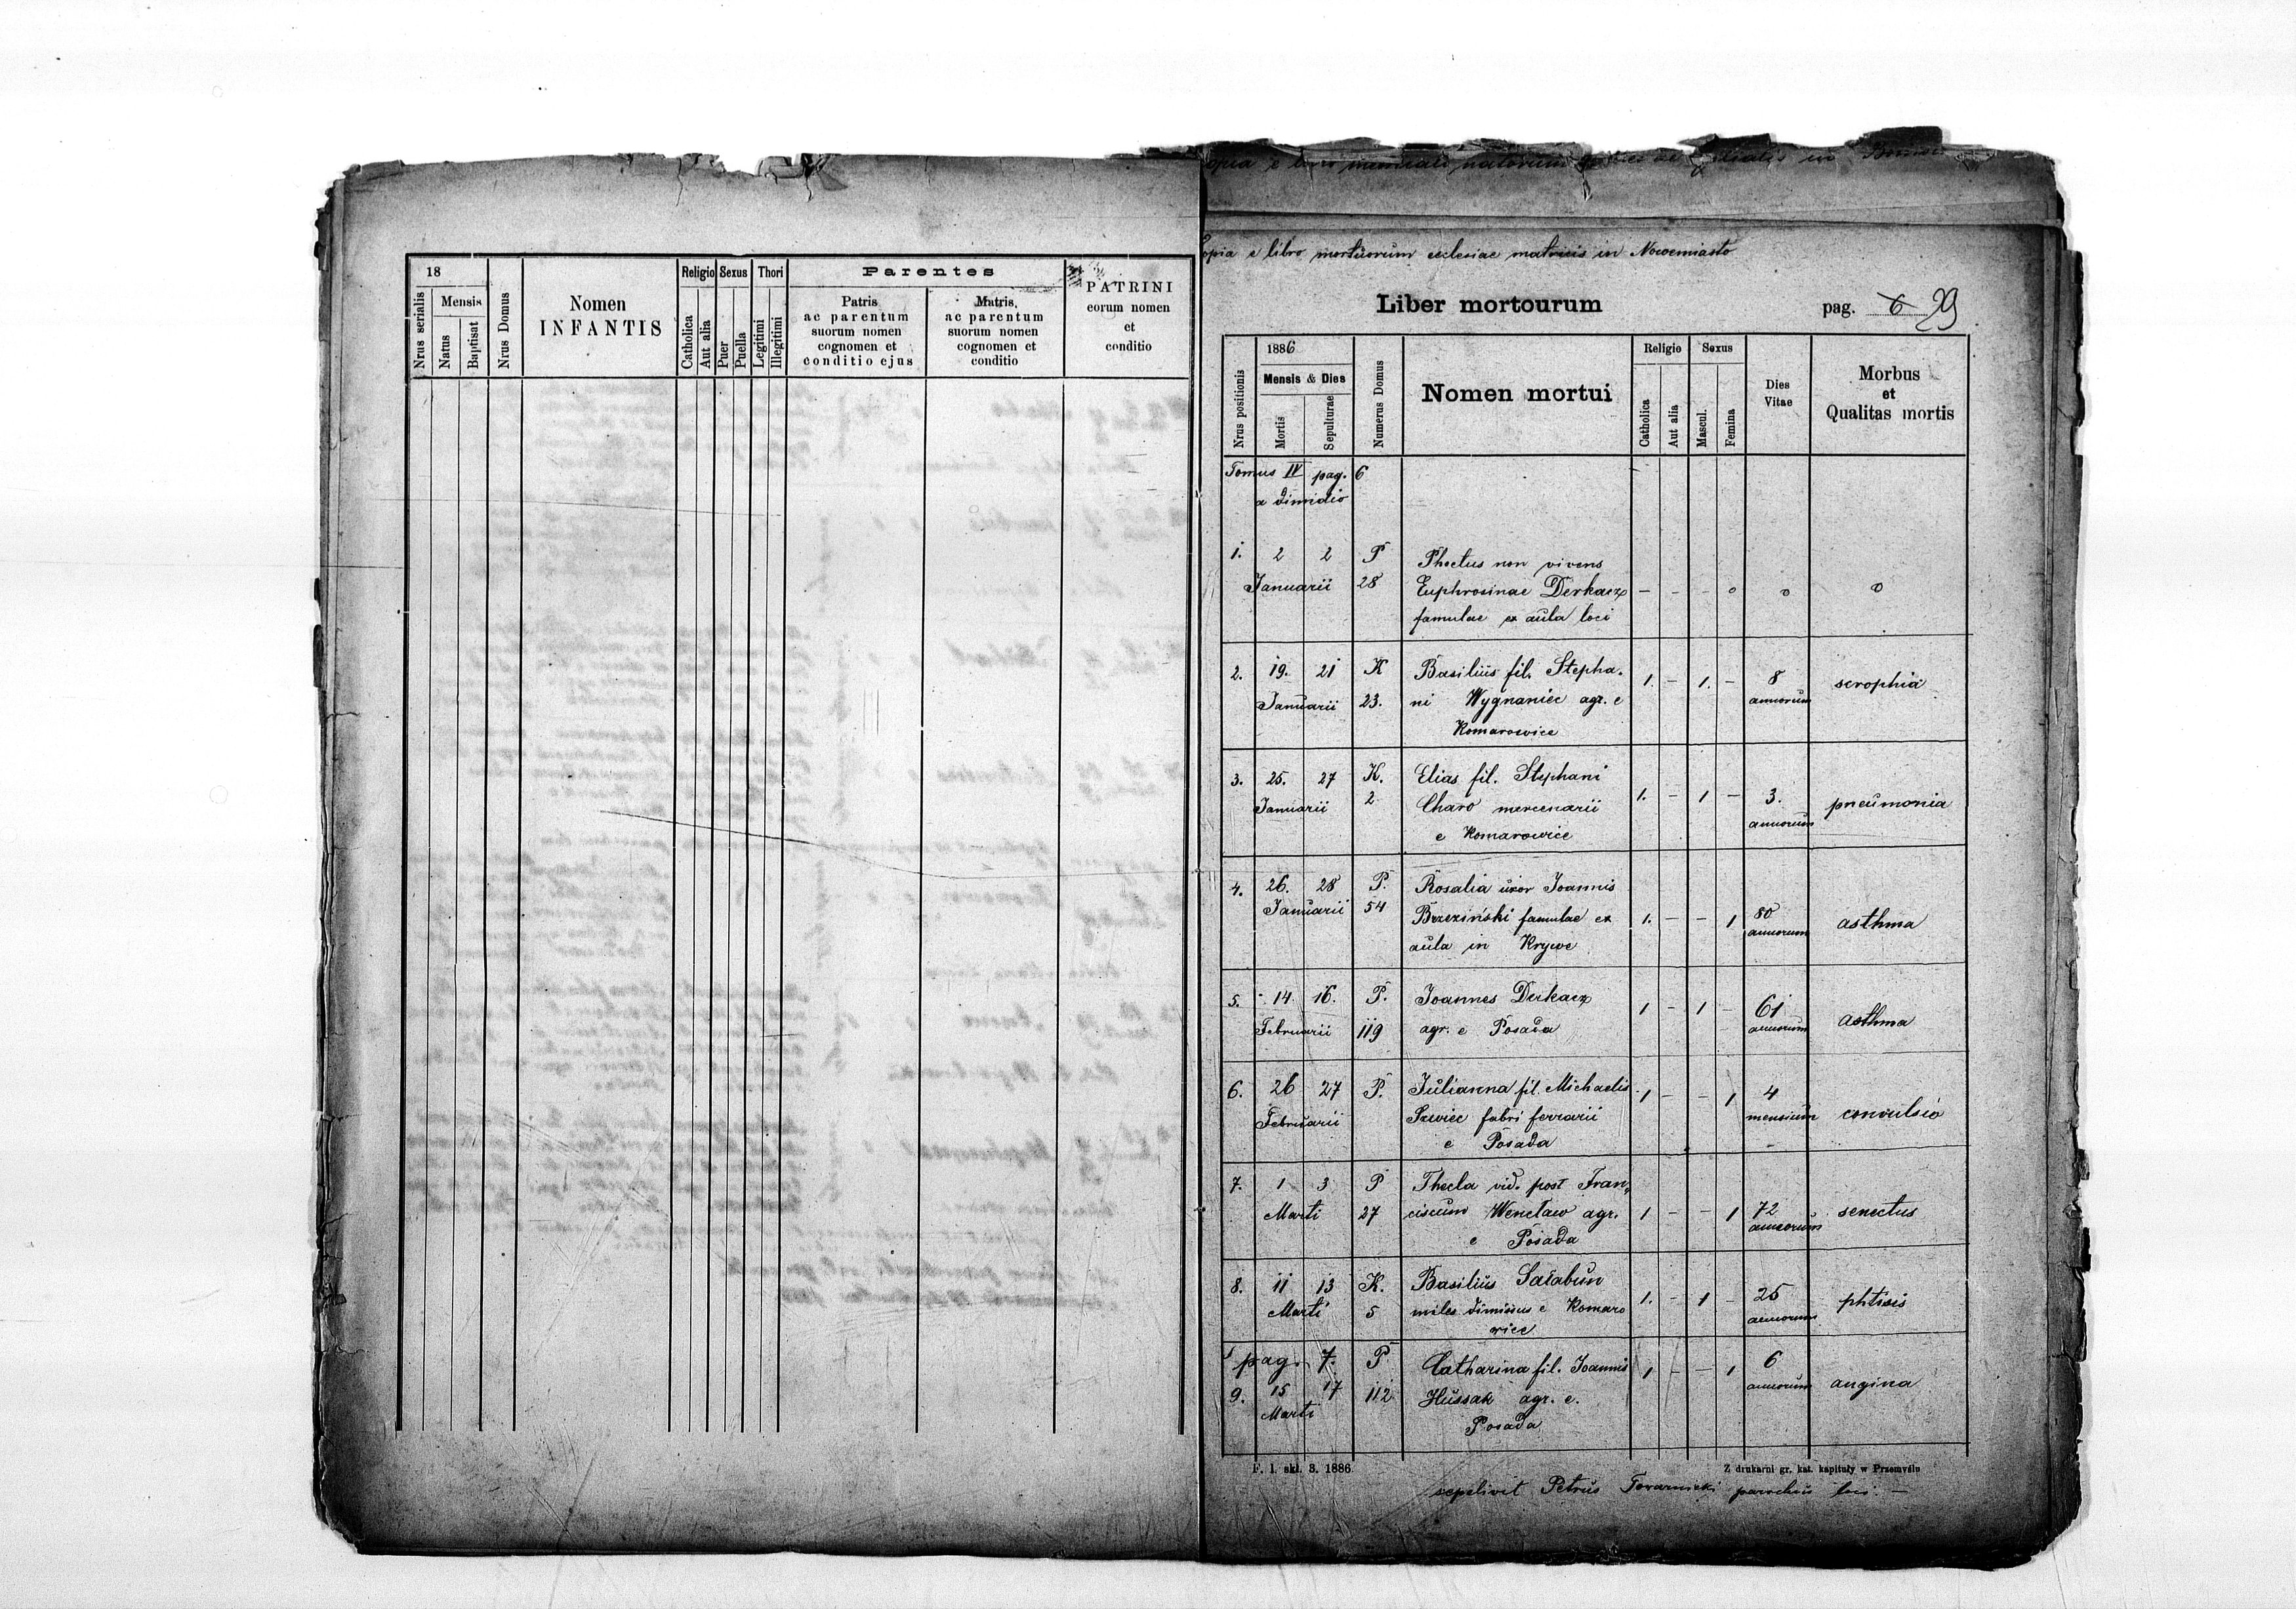 18
Nrus serialis
Mensis
Natus
Baptisat
Nrus Domus
Nomen
INFANTIS
Religio
Catholica
Aut alia
Sexus
Puer
Puella
Thori
Legitimi
Illegitimi
Parentes
Patris
ac parentum
suorum nomen
cognomen et
conditio ejus
Matris,
ac parentum
suorum nomen
cognomen et
conditio
PATRINI
eorum nomen
et
conditio
opia e libro mortuorum ecclesiae matricis in Nowemiasto
Liber mortourum
pag. 6 29
Nrus positionis
1886
Mensis & Dies
Mortis
Sepulturae
Numerus Domus
Nomen mortui
Religio
Catholica
Aut alia
Sexus
Mascul.
Femina
Dies
Vitae
Morbus
et
Qualitas mortis
Tomus IV pag. 6
a dimidio
1. 2 2 P Phoetus non vivens
Januarii 28 Euphrosinae Derkacz - - - o o o
famulae ex aula loci
2. 19. 21 K Basilius fil. Stepha- 1. - 1. - 8 scrophia
Januarii 23. ni Wygnaniec agr. e annorum
Komarowice
3. 25. 27 K. Elias fil. Stephani
Januarii 2 Charo mercenarii 1. - 1 - 3. pneumonia
e Komarowice annorum
4. 26. 28 P. Rosalia uxor Joannis
Januarii 54 Brzeziński famulae ex 1. - - 1 80 asthma
aula in Krywe annorum
5. 14. 16. P. Joannes Derkacz 1 - 1 - 61 asthma
Februarii 119 agr. e Posada annorum
6. 26 27 P. Julianna fil. Michaelis 1 - - 1 4
Februarii Szwiec fabri ferrarii mensium convulsio
e Posada
7. 1 3 P Thecla vid. post Fran-
Marti 27 ciscum Wencław agr. 1 - - 1 72 senectus
e Posada annorum
8. 11 13 K. Basilius Sałabun 1. - 1 - 25 phtisis
Marti 5 miles dimissus e Komaro annorum
wice
pag. 7. P Catharina fil. Joannis 1 - - 1 6
9. 15 17 112 Hussak agr. e. annorum angina
Marti Posada
F. 1. skł. 3. 1886
Z drukarni gr. kat. kapituły w Przemyślu
sepelivit Petrus Towarnicki parochus loci. -